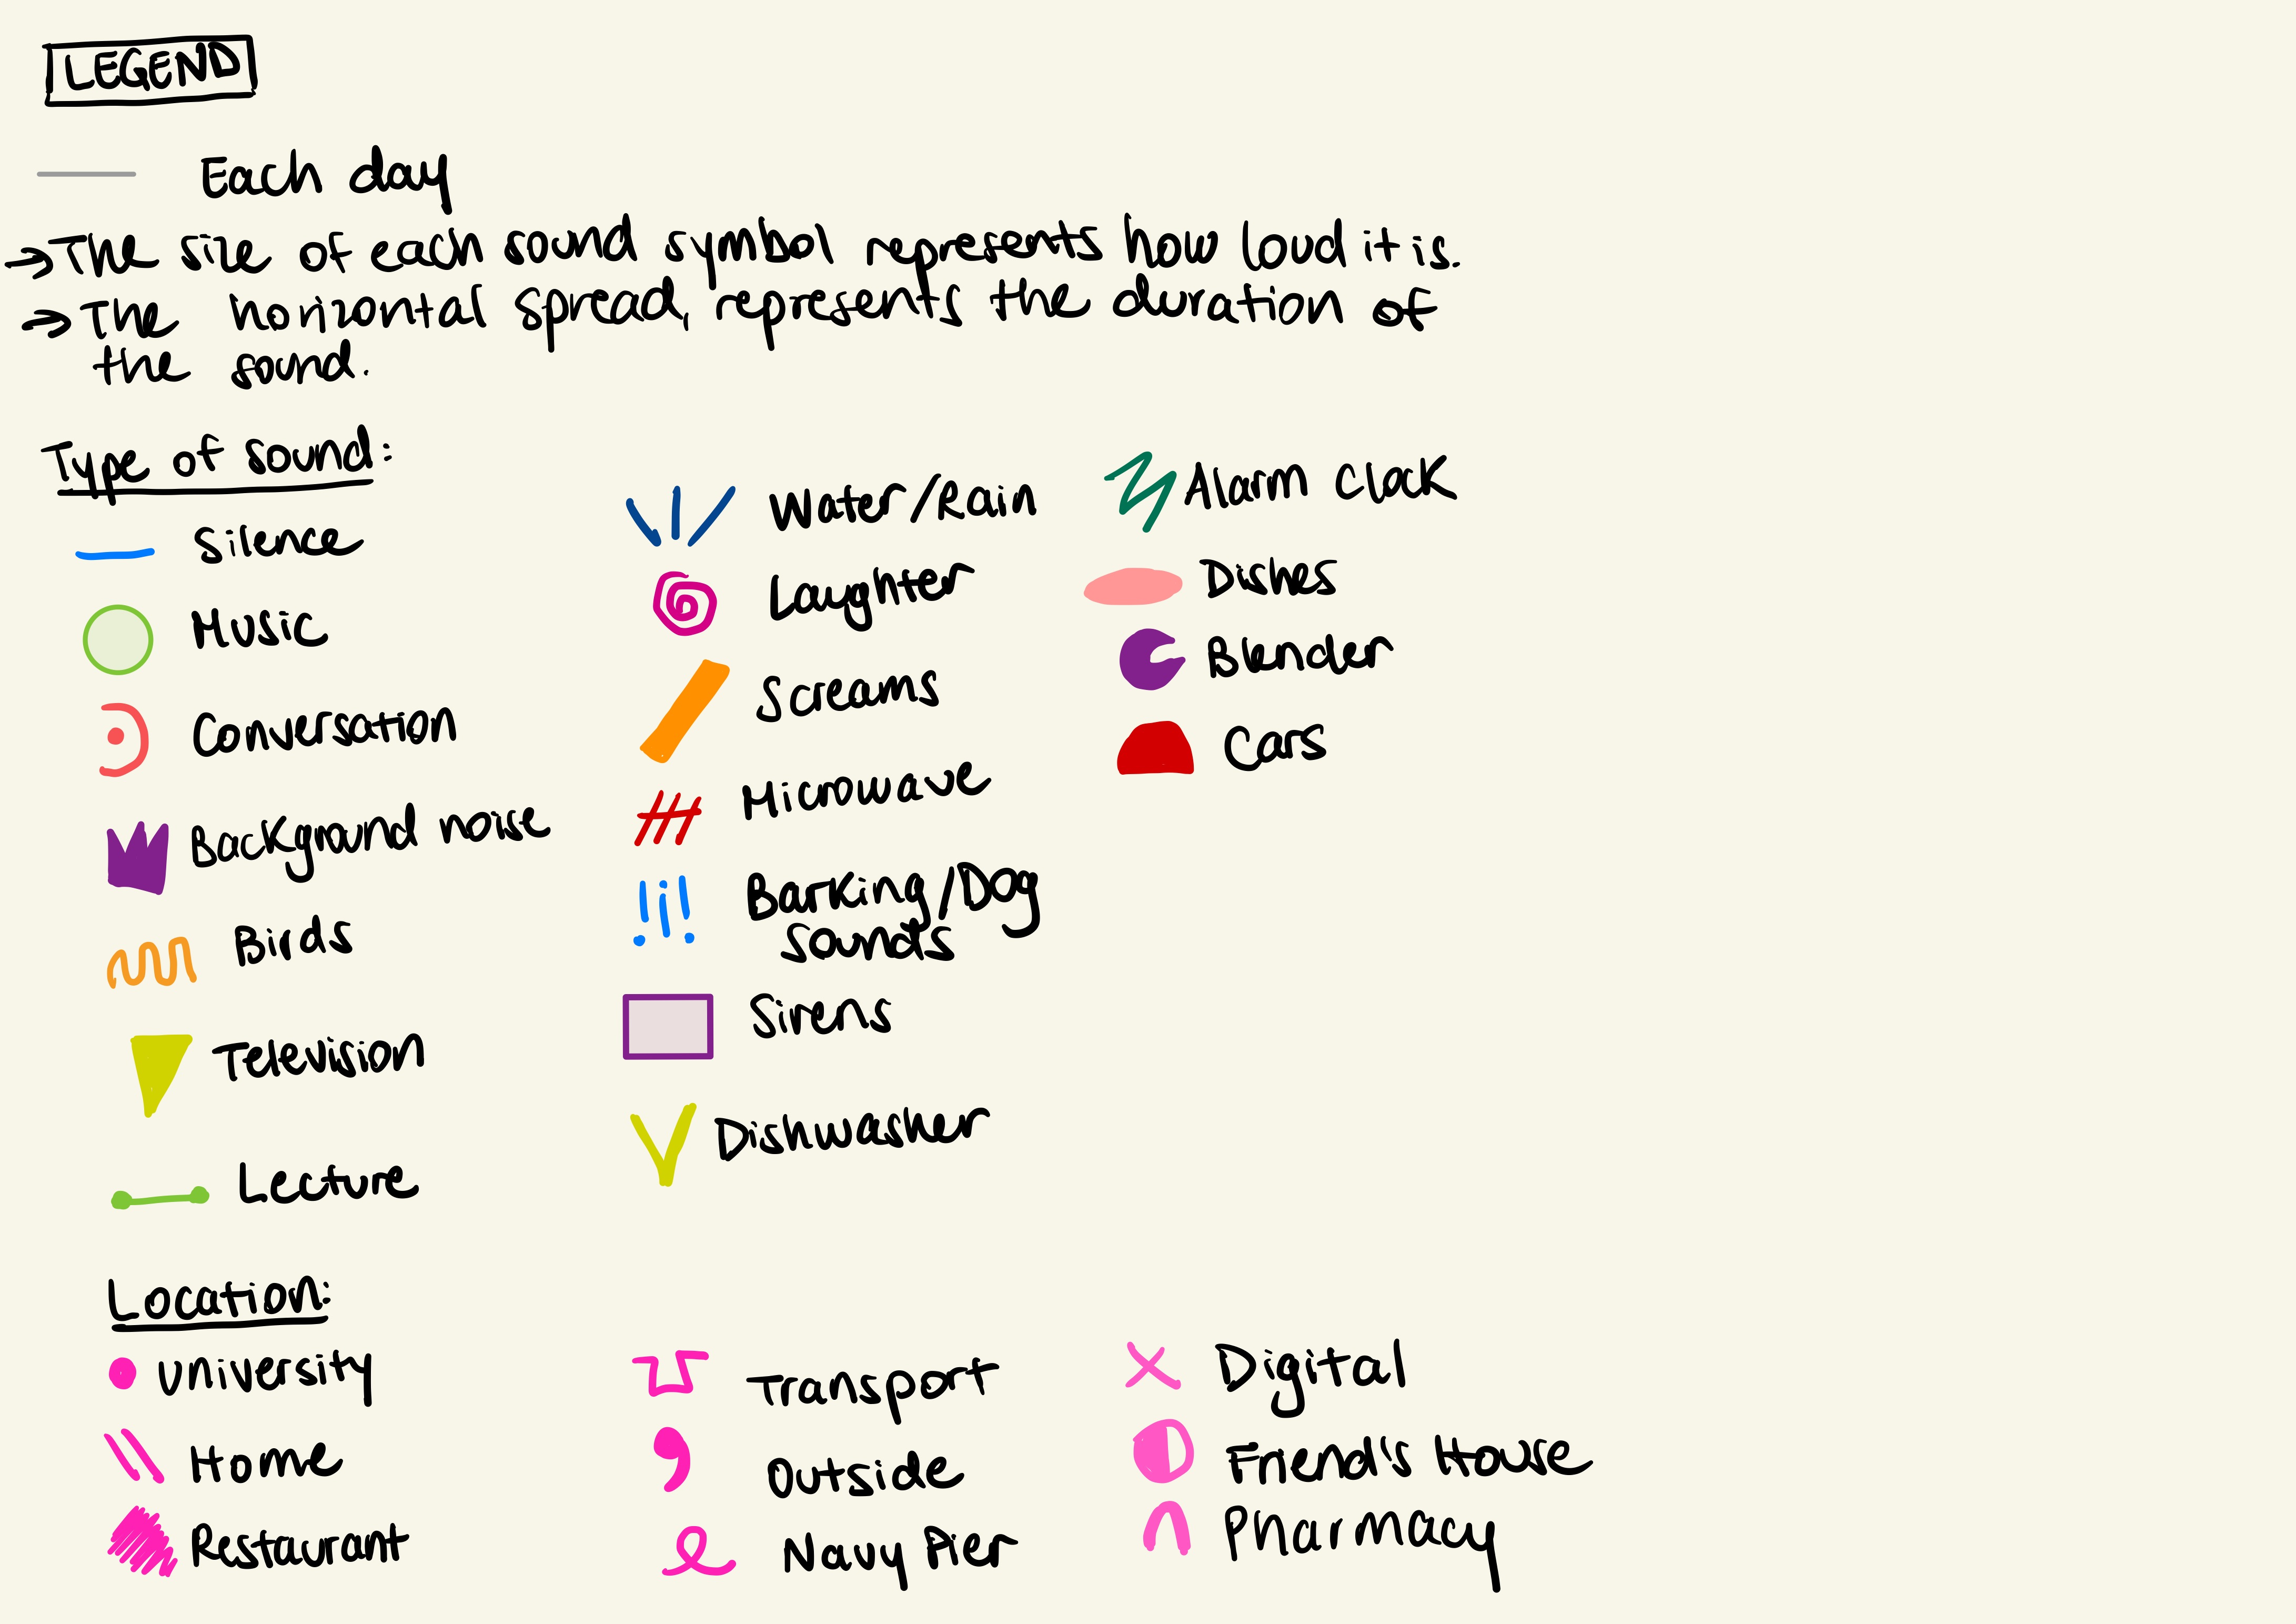 LEGEND
Each day
→ The size of each sound symbol represents how loud it is.
→ The horizontal spread, represents the duration of
the sound.
Type of sound:
Silence
Music
Conversation
Background noise
Birds
Television
Lecture
Water/Rain
Laughter
Screams
Microwave
Barking/Dog
Sounds
Sirens
Dishwasher
Alarm Clock
Dishes
Blender
Cars
Location:
University
Home
Restaurant
Transport
Outside
Navy Pier
Digital
Friend's House
Pharmacy